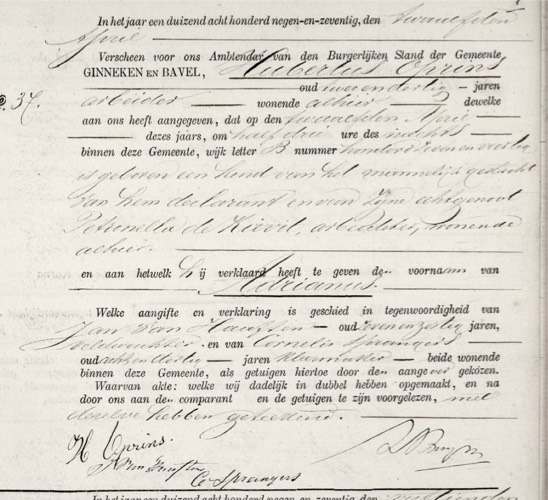 In het jaar een duizend acht honderd negen-en-zeventig, den twaalfden
April
Verscheen voor ons Ambtenaar van den Burgerlijken Stand der Gemeente
GINNEKEN EN BAVEL, Hubertus Oprins
oud twee en dertig jaren
37. arbeider wonende alhier dewelke
aan ons heeft aangegeven, dat op den twaalfden April
dezes jaars, om half drie ure des nachts
binnen deze Gemeente, wijk letter B nummer honderd zeven en veertig
is geboren een kind van het mannelijk geslacht
van hem declarant en van zijne echtgenoot
Petronella de Kievit, arbeidster, wonende
alhier.
en aan hetwelk hij verklaard heeft te geven den voornaam van
Adrianus.
Welke aangifte en verklaring is geschied in tegenwoordigheid van
Jan van oud zeven en zestig jaren,
veldwachter en van Cornelis Sprangers
oud achtendertig jaren kleermaker beide wonende
binnen deze Gemeente, als getuigen hiertoe door den aangever gekozen.
Waarvan akte: welke wij dadelijk in dubbel hebben opgemaakt, en na
door ons aan den comparant en de getuigen te zijn voorgelezen, met
dezelve hebben geteekend.
H Oprins.
Co Sprangers
In het jaar een duizend acht honderd negen-en-zeventig, den